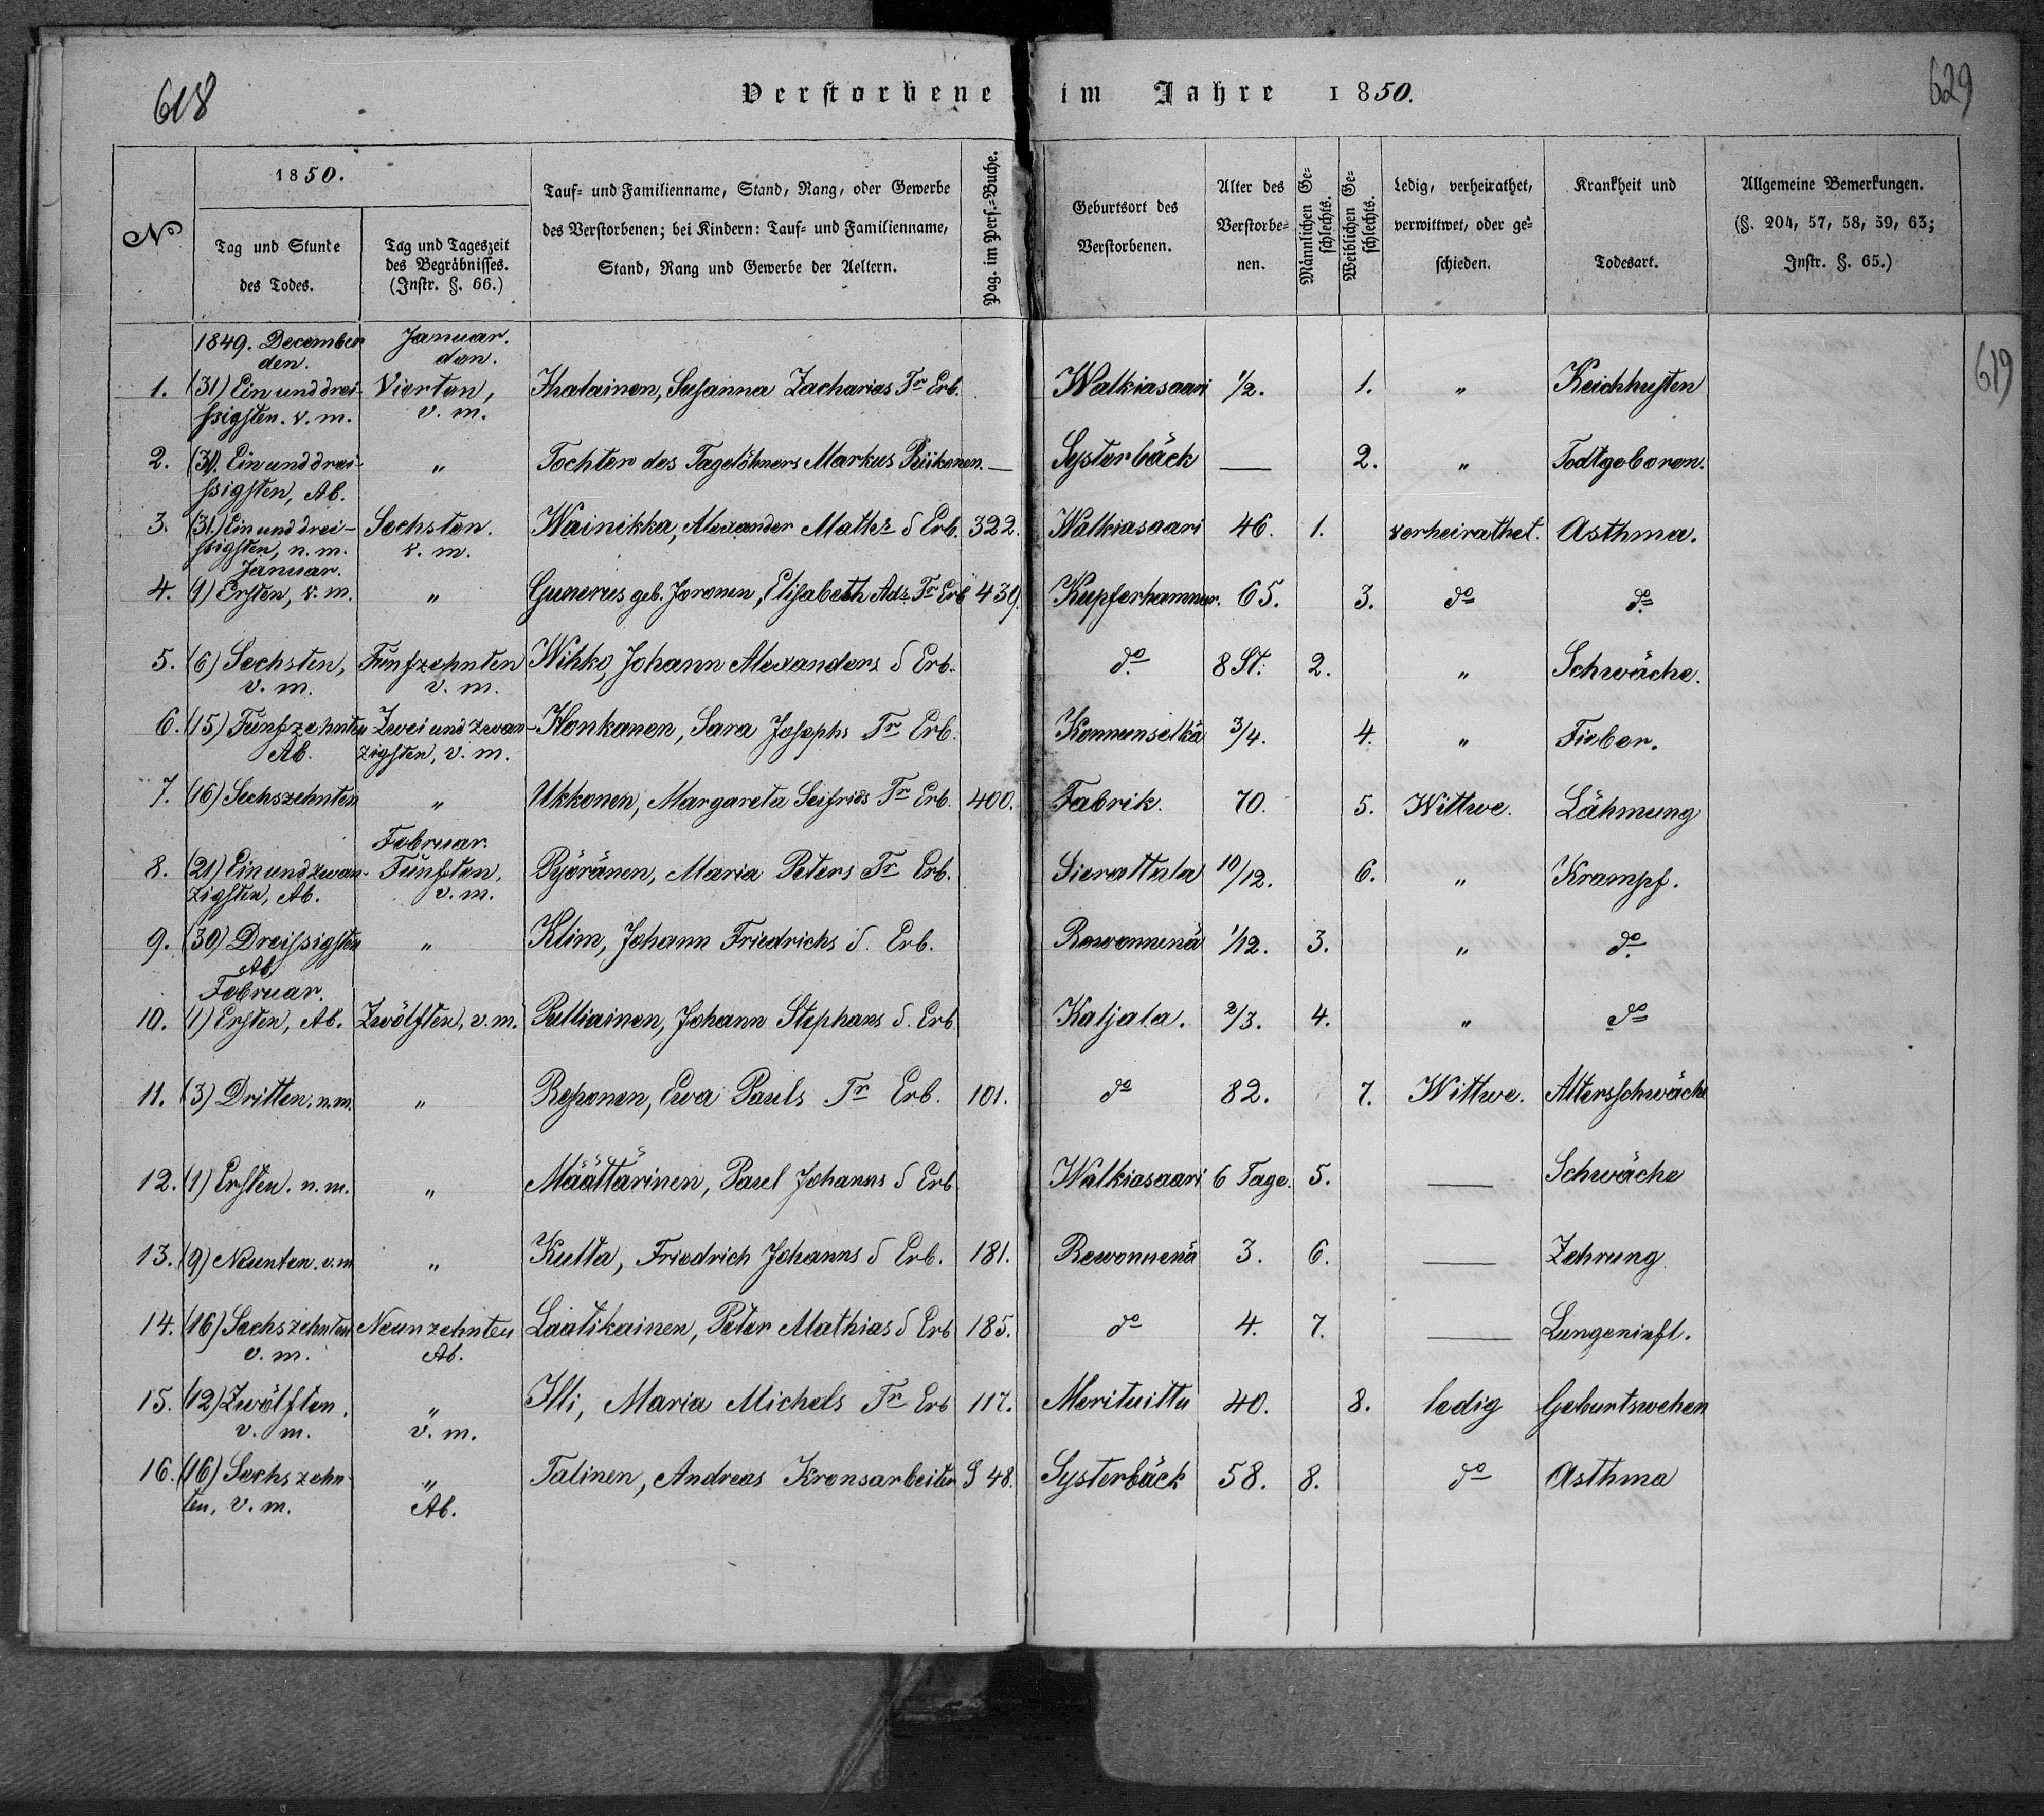 618
Verstorbene im Jahre 1850.
629
619
№
1850.
Tag und Stunde des Todes.
Tag und Tageszeit des Begräbnisses. (Instr. §. 66.)
Tauf- und Familienname, Stand, Rang, oder Gewerbe des Verstorbenen; bei Kindern: Tauf- und Familienname, Stand, Rang und Gewerbe der Aeltern.
Pag. im Pers.-Buche.
Geburtsort des Verstorbenen.
Alter des Verstorbenen.
Männlichen Geschlechts.
Weiblichen Geschlechts.
Ledig, verheirathet, verwittwet, oder geschieden.
Krankheit und Todesart.
Allgemeine Bemerkungen. (§. 204, 57, 58, 59, 63; Instr. §. 65.)
1849. December den. Januar. den.
1. (31) Ein und dreissigsten. v. m. Vierten, v. m. Ihatainen, Susanna Zacharias Tr Erb. Walkiasaari 1/2. 1. " Keichhusten
2. (31). Ein und dreissigsten, Ab. " Tochter des Tagelöhners Markus Riikonen. — Systerbäck — 2. " Todtgeboren.
3. (31.) Ein und dreissigsten, n. m. Sechsten. v. m. Wainikka, Alexander Matths S Erb. 322. Walkiasaari 46. 1. verheirathet. Asthma.
Januar.
4. (1) Ersten, v. m. " Gunerus geb. Joronen, Elisabeth Ads Tr Erb 439. Kupferhammer. 65. 3. do do
5. (6) Sechsten, v. m. Fünfzehnten v. m. Wihko, Johann Alexanders S Erb. do 8 St. 2. " Schwäche.
6. (15) Fünfzehnten Ab. Zwei und zwanzigsten, v. m. Honkanen, Sara Josephs Tr Erb. Konnunselkä 3/4. 4. " Fieber.
7. (16) Sechszehnten " Ukkonen, Margareta Seifrids Tr Erb. 400. Fabrik. 70. 5. Wittwe. Lähmung
Februar.
8. (21) Ein und zwanzigsten, Ab. Fünften, v. m. Pyöränen, Maria Peters Tr Erb. Sierattala 10/12. 6. " Krampf.
9. (30) Dreissigsten Ab. " Klim, Johann Friedrichs S. Erb. Rewonnenä 1/12. 3. " do
Februar.
10. (1) Ersten, Ab. Zwölften, v. m. Pulliainen, Johann Stephans S. Erb Kaljala. 2/3. 4. " do
11. (3) Dritten, n. m. " Reponen, Ewa Pauls Tr Erb. 101. do 82. 7. Wittwe. Altersschwäche
12. (1) Ersten. n. m. " Määttärinen, Paul Johanns S Erb Walkiasaari 6 Tage. 5. — Schwäche
13. (9) Neunten. v. m " Kutta, Friedrich Johanns S Erb. 181. Rewonnenä 3. 6. — Zehrung
14. (16) Sechszehnten v. m. Neunzehnten Ab. Laatikainen, Peter Mathias S Erb 185. do 4. 7. — Lungeninfl.
15. (12) Zwölften. v. m. " v. m. Illi, Maria Michels Tr Erb 117. Merituittu 40. 8. ledig Geburtswehen
16. (16) Sechszehnten, v. m. " Ab. Talinen, Andreas Kronsarbeiter S 48. Systerbäck 58. 8. do Asthma